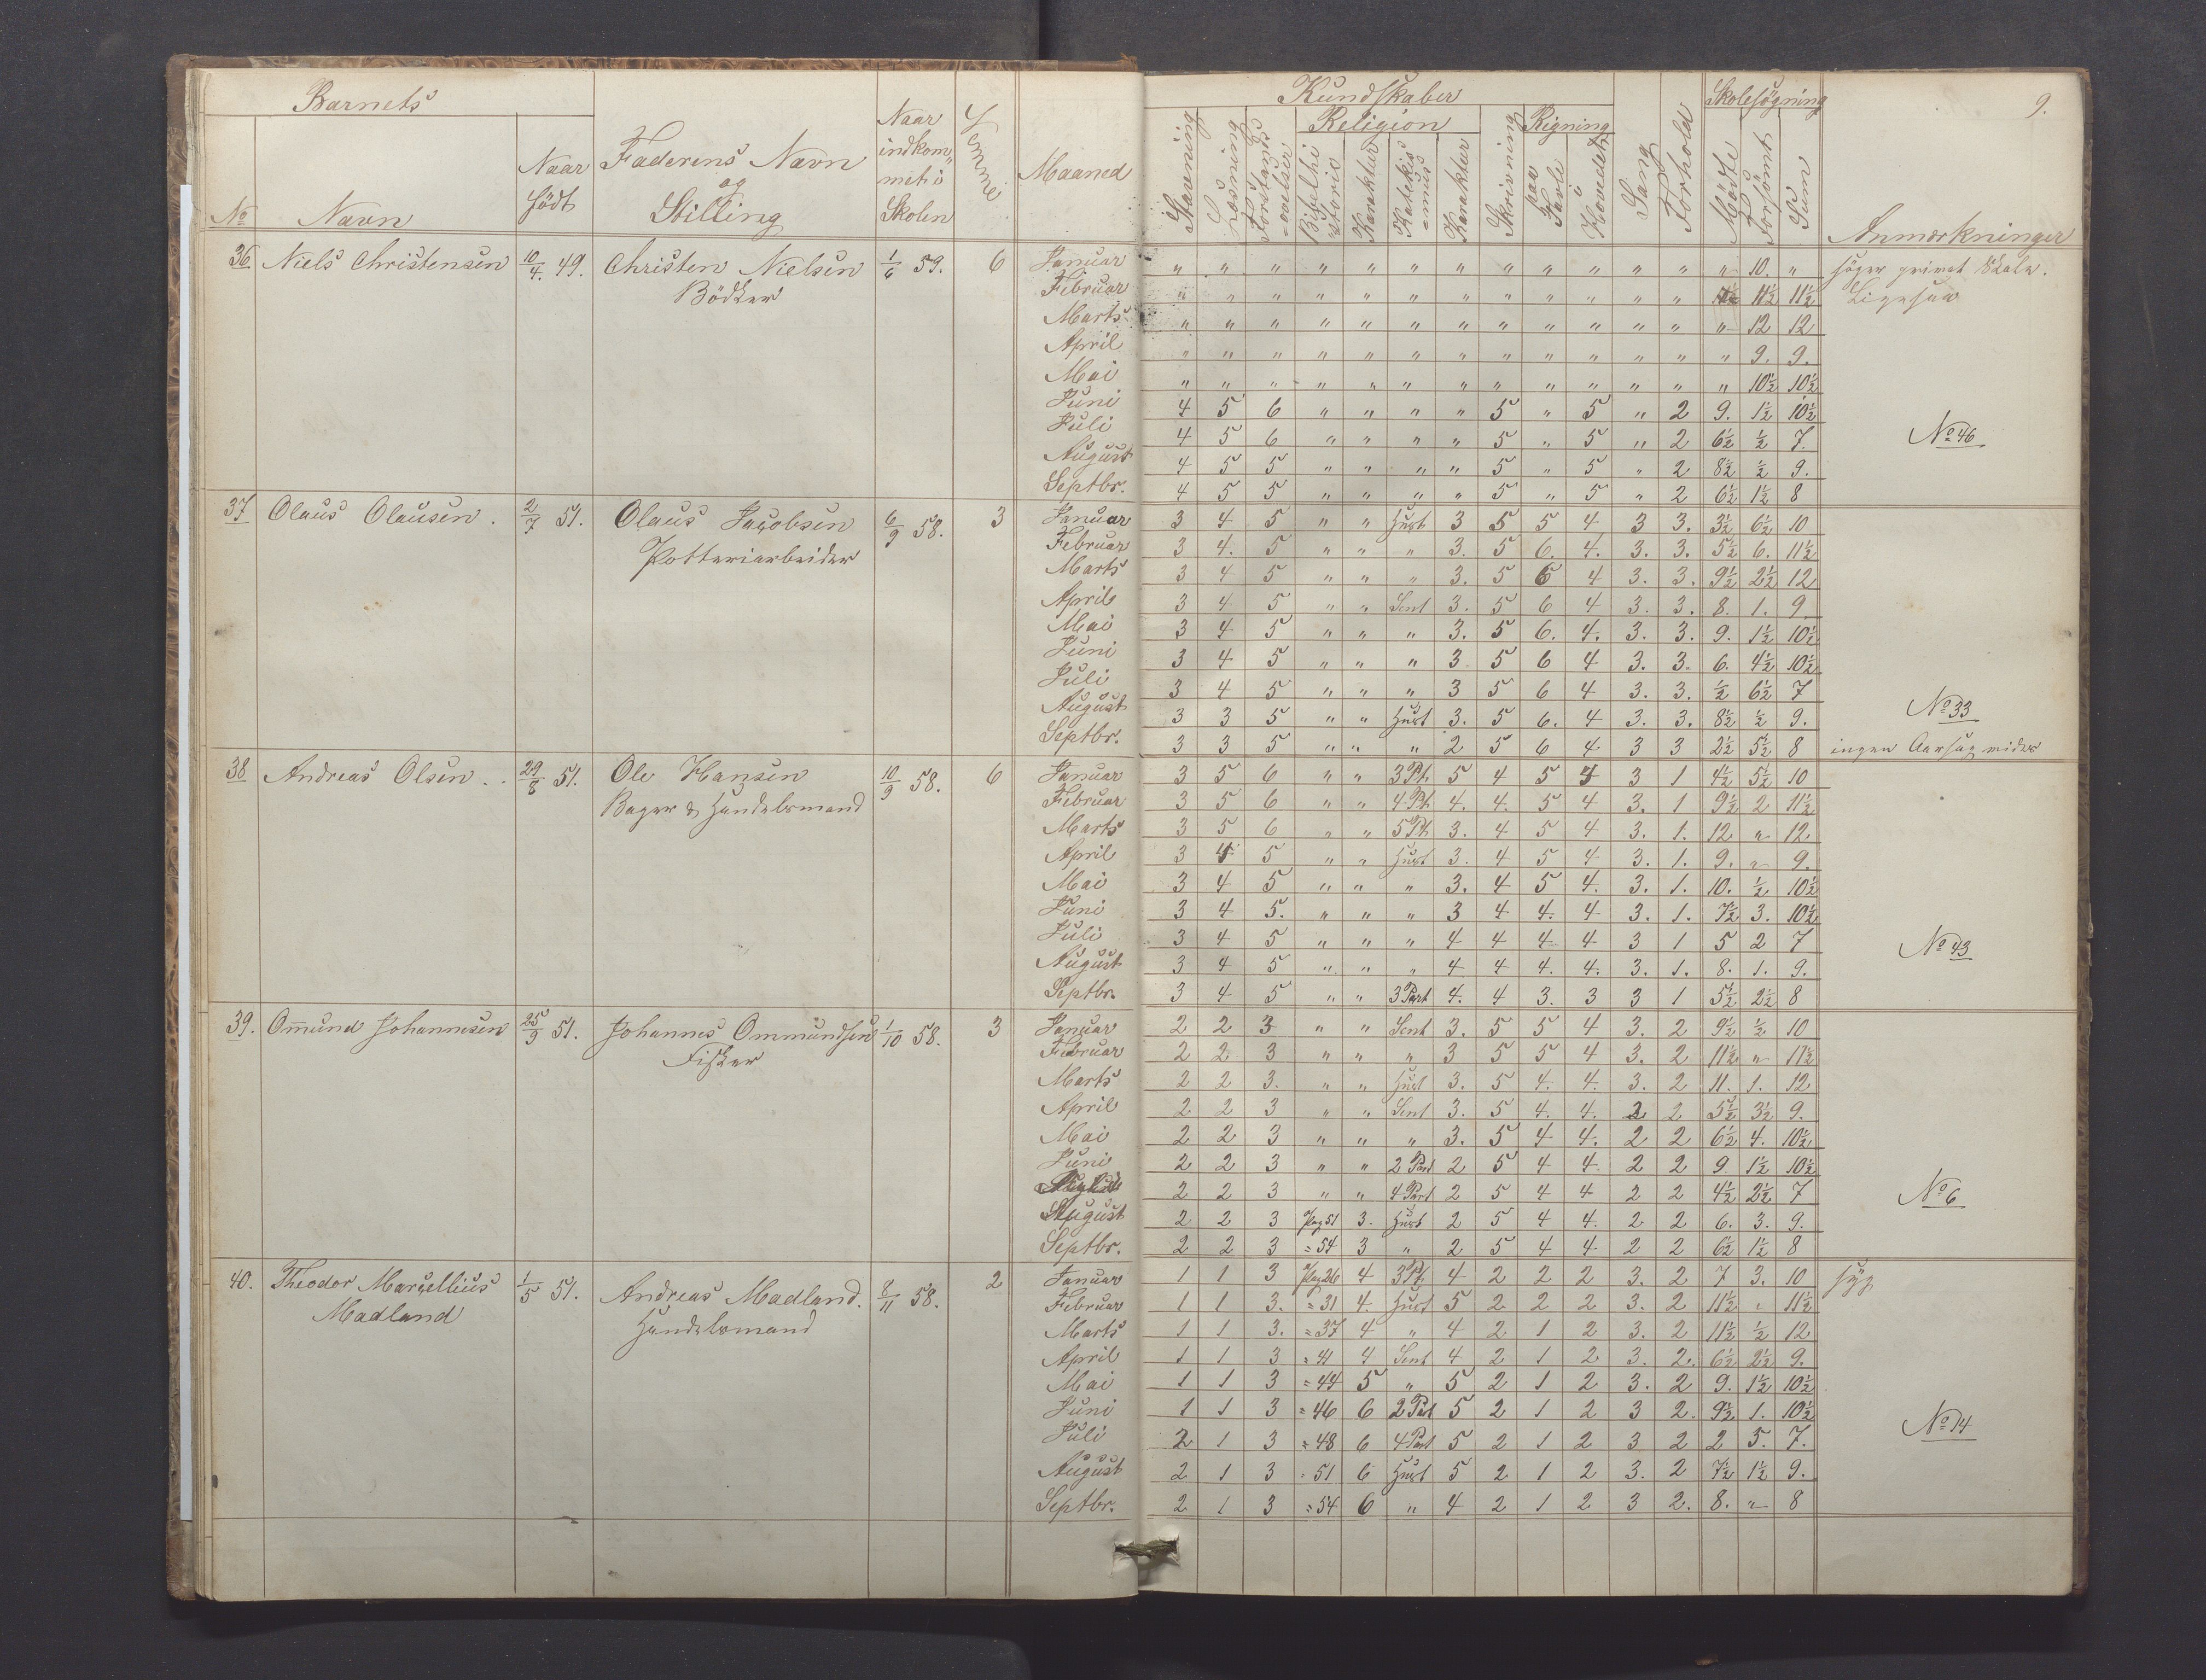 Barnets
Kundskaber
Skolesøgning
9.
No
Navn
Naar født
Faderens Navn og Stilling
Naar indkommet i Skolen
Maaned
Stavning
Læsning
Forstands=øvelser
Religion
Bibelhistorie
Karakter
Katekis=mus
Karakter
Skrivning
Regning
paa Tavle
i Hovedet
Sang
Forhold
Mødte
Forsømt
Sum
Anmærkninger
36 Niels Christensen 10/4 49. Christen Nielsen 1/6 59. 6 Januar " " " " " " " " " " " " " 10. " søger privat Skole.
Bødker
Februar " " " " " " " " " " " " 11½ 11½ Ligesaa
Marts " " " " " " " " " " " " " 12 12
April " " " " " " " " " " " " " 9. 9.
Mai " " " " " " " " " " " " " 10½ 10½
Juni 4 5 6 " " " " 5 " 5 " 2 9. 1½ 10½
Juli 4 5 6 " " " " 5 " 5 " 2 6½ ½ 7. No 46
August 4 5 5 " " " " 5 " 5 " 2 8½ ½ 9.
Septbr. 4 5 5 " " " " 5 " 5 " 2 6½ 1½ 8
37 Olaus Olausen. 2/7 51. Olaus Jacobsen 6/9 58. 3 Januar 3 4 5 " " Hust 3 5 5 4 3 3. 3½ 6½ 10
Potteriarbeider
Februar 3 4. 5 " " " 3. 5 6. 4. 3. 3. 5½ 6. 11½
Marts 3 4 5 " " " 3. 5 6 4 3. 3. 9½ 2½ 12
April 3 4 5 " " Sent 3. 5 6 4 3. 3. 8. 1. 9.
Mai 3 4 5 " " " 3. 5 6. 4. 3. 3. 9. 1½ 10½
Juni 3 4 5 " " " 3 5 6 4 3. 3. 6. 4½ 10½
Juli 3 4 5 " " " 3 5 6 4 3. 3. ½ 6½ 7
August 3 3 5 " " Hust 3. 5 6. 4 3. 3. 8½ ½ 9. No 33
Septbr. 3 3 5 " " " 2 5 6 4 3 3 2½ 5½ 8 ingen Aarsag vides
38 Andreas Olsen .. 29/8 51. Ole Hansen 10/9 58. 6 Januar 3 5 6 " " 3 Pt. 5 4 5 4 3 1 4½ 5½ 10
Bager & Handelsmand
Februar 3 5 6 " " 4 Pt. 4. 4. 5 4 3. 1 9½ 2 11½
Marts 3 5 6 " " 5 Pt. 3. 4 5 4 3. 1. 12 " 12.
April 3 4 5 " " Hust 3. 4 5 4 3. 1. 9. " 9.
Mai 3 4 5 " " " 3. 4 5 4. 3. 1. 10. ½ 10½
Juni 3 4 5. " " " 3 4 4. 4 3. 1. 7½ 3. 10½
Juli 3 4 5 " " " 4 4 4 4 3 1 5 2 7 No 43
August 3 4 5 " " " 4 4 4. 4. 3. 1. 8. 1. 9.
Septbr. 3 4 5 " " 3 Part 4. 4 3. 3 3 1 5½ 2½ 8
39. Omund Johannesen 25/9 51. Johannes Ommundsen 1/10 58. 3 Januar 2 2 3 " " Sent 3. 5 5 4 3. 2 9½ ½ 10
Fisker
Februar 2 2 3 " " " 3 5 5 4 3. 2 11½ " 11½
Marts 2 2 3. " " Hust 3. 5 4. 4. 3. 2 11. 1. 12
April 2 2 3 " " Sent 3. 5 4. 4. 2 2 5½ 3½ 9.
Mai 2 2 3 " " " 3. 5 4 4. 2 2 6½ 4. 10½
Juni 2 2 3 " " 2 Part 2 5 4 4 2 2 9 1½ 10½
2 2 3 " " 4 Part 2 5 4 4 2 2 4½ 2½ 7 No 6
August 2 2 3 Pag 51 3. Hust 2 5 4 4. 2 2 6. 3. 9.
Septbr. 2 2 3 = 54 3 " 2 5 4 4 2 2 6½ 1½ 8
40. Theodor Marcellius Madland 1/5 51. Andreas Madland. 8/11 58. 2 Januar 1 1 3 Pag 26 4 3 Pt. 4 2 2 2 3. 2 7 3. 10 syg
Handelsmand
Februar 1 1 3. = 31 4. Hust 5 2 2 2 3. 2 11½ " 11½
Marts 1 1 3. = 37 4 " 4 2 1 2 3. 2 11½ ½ 12
April 1 1 3 = 41 4 Sent 4 2 1 2 3. 2. 6½ 2½ 9.
Mai 1 1 3 = 44 5 " 5 2 1 2 3. 2 9. 1½ 10½
Juni 1 1 3 = 46 6 2 Part 5 2 1 2 3 2. 9½ 1. 10½
Juli 2 1 3 = 48 6 4 Part 5 2 1 2 3 2 2 5. 7. No 14
August 2 1 3 = 51 6 Hust 5 2 1 2 3. 2 7½ 1½ 9.
Septbr. 2 1 3 = 54 6 " 4 2 1 2 3 2. 8. " 8